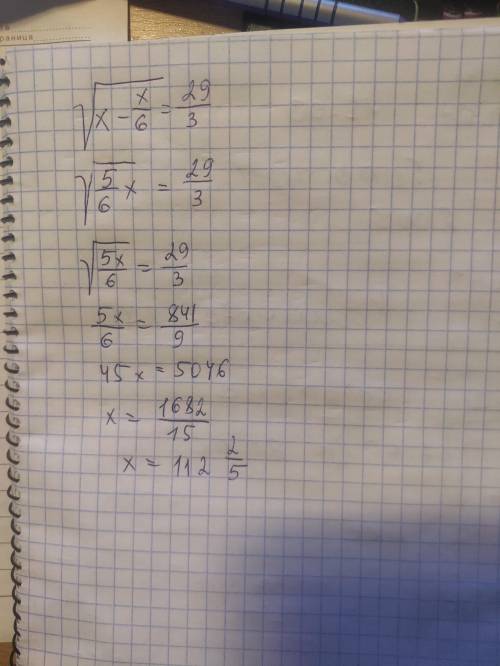 раница
√(x - x/6) = 29/3
√(5/6 x) = 29/3
√(5x/6) = 29/3
5x/6 = 841/9
45x = 5046
x = 1682/15
x = 112 2/5